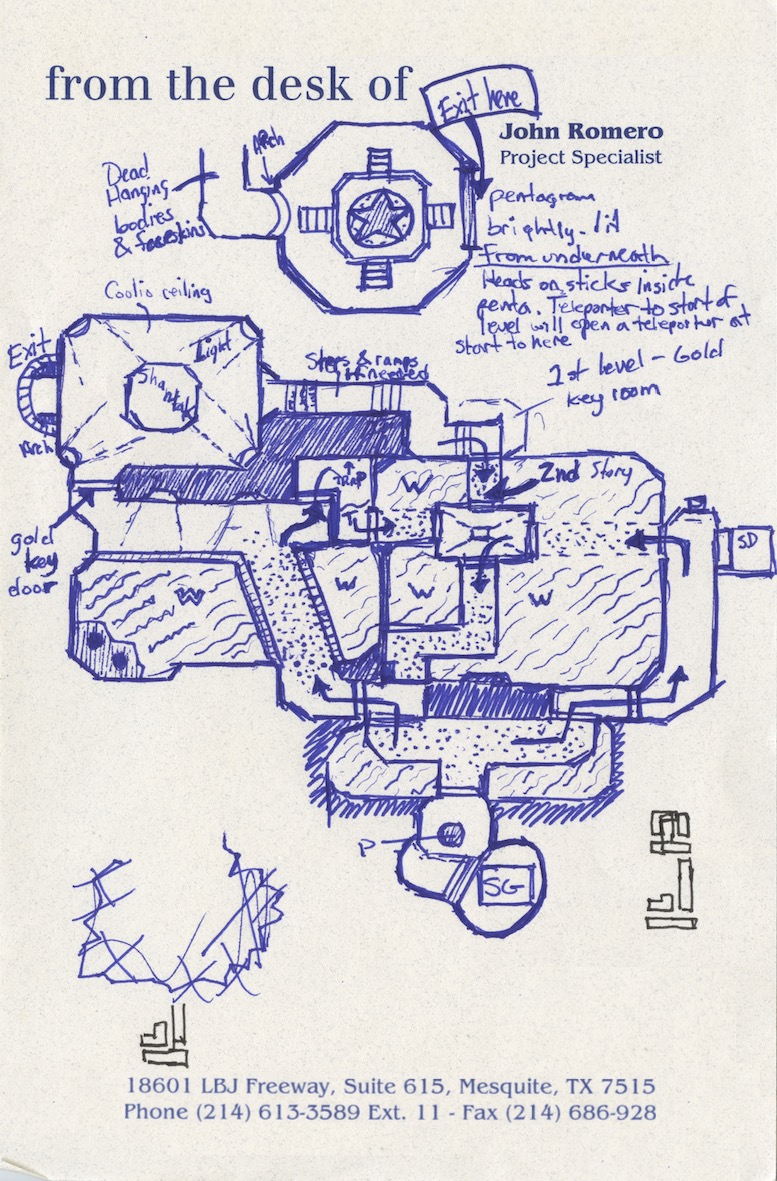 from the desk of
Exit here
John Romero
Project Specialist
Arch
Dead
Hanging
bodies
& foreskins
pentagram
brightly lit
from underneath
Heads on sticks inside
penta. Teleporter to start of
level will open a teleporter at
start to here
Coolio ceiling
Exit
Light
Shantak
Steps & ramps
if needed
1st level - Gold
key room
Arch
TRAP
W
2nd Story
gold
key
door
SD
W
W
W
W
P
SG
18601 LBJ Freeway, Suite 615, Mesquite, TX 7515
Phone (214) 613-3589 Ext. 11 - Fax (214) 686-928